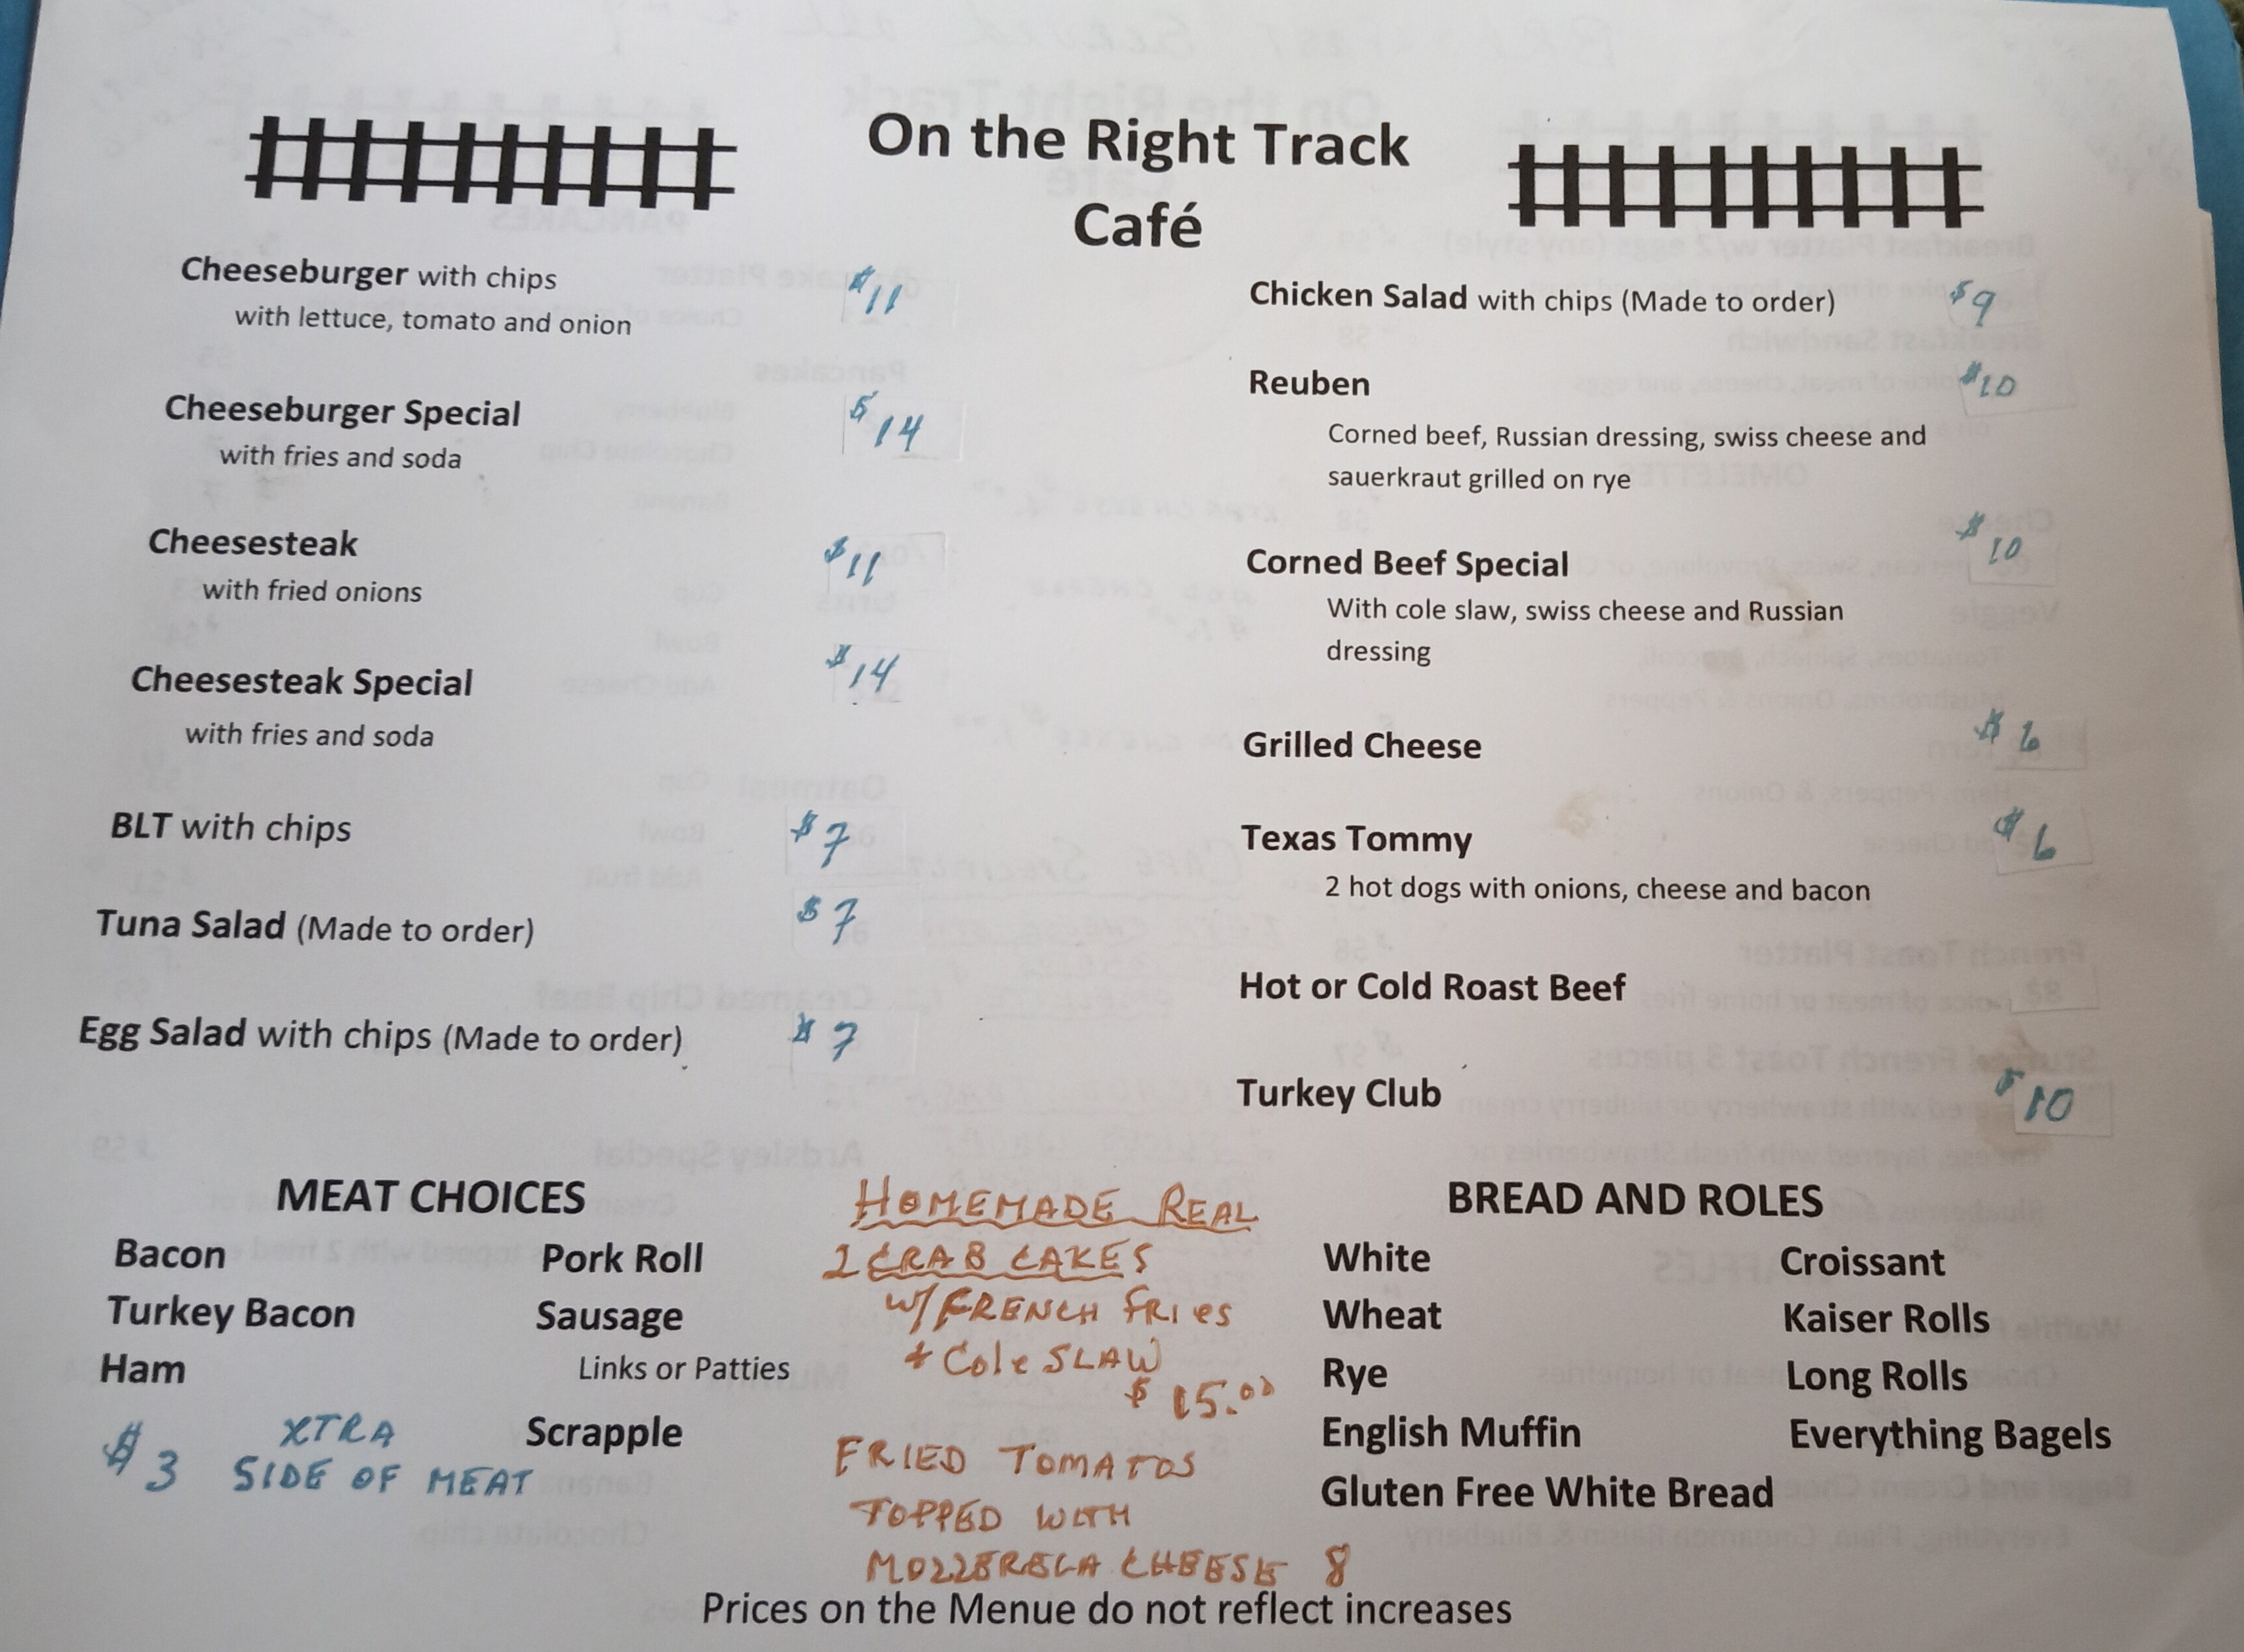 On the Right Track
Café
Cheeseburger with chips $11
with lettuce, tomato and onion
Cheeseburger Special $14
with fries and soda
Cheesesteak $11
with fried onions
Cheesesteak Special $14
with fries and soda
BLT with chips $7
Tuna Salad (Made to order) $7
Egg Salad with chips (Made to order) $7
Chicken Salad with chips (Made to order) $9
Reuben $10
Corned beef, Russian dressing, swiss cheese and
sauerkraut grilled on rye
Corned Beef Special $10
With cole slaw, swiss cheese and Russian
dressing
Grilled Cheese $6
Texas Tommy $6
2 hot dogs with onions, cheese and bacon
Hot or Cold Roast Beef
Turkey Club $10
MEAT CHOICES
Bacon Pork Roll
Turkey Bacon Sausage
Ham Links or Patties
Scrapple
$3 XTRA
SIDE OF MEAT
HOMEMADE REAL
CRAB CAKES
W/FRENCH FRIES
+ Cole SLAW
$15.00
FRIED TOMATOS
TOPPED WITH
MOZZERELA CHEESE 8
BREAD AND ROLES
White Croissant
Wheat Kaiser Rolls
Rye Long Rolls
English Muffin Everything Bagels
Gluten Free White Bread
Prices on the Menue do not reflect increases